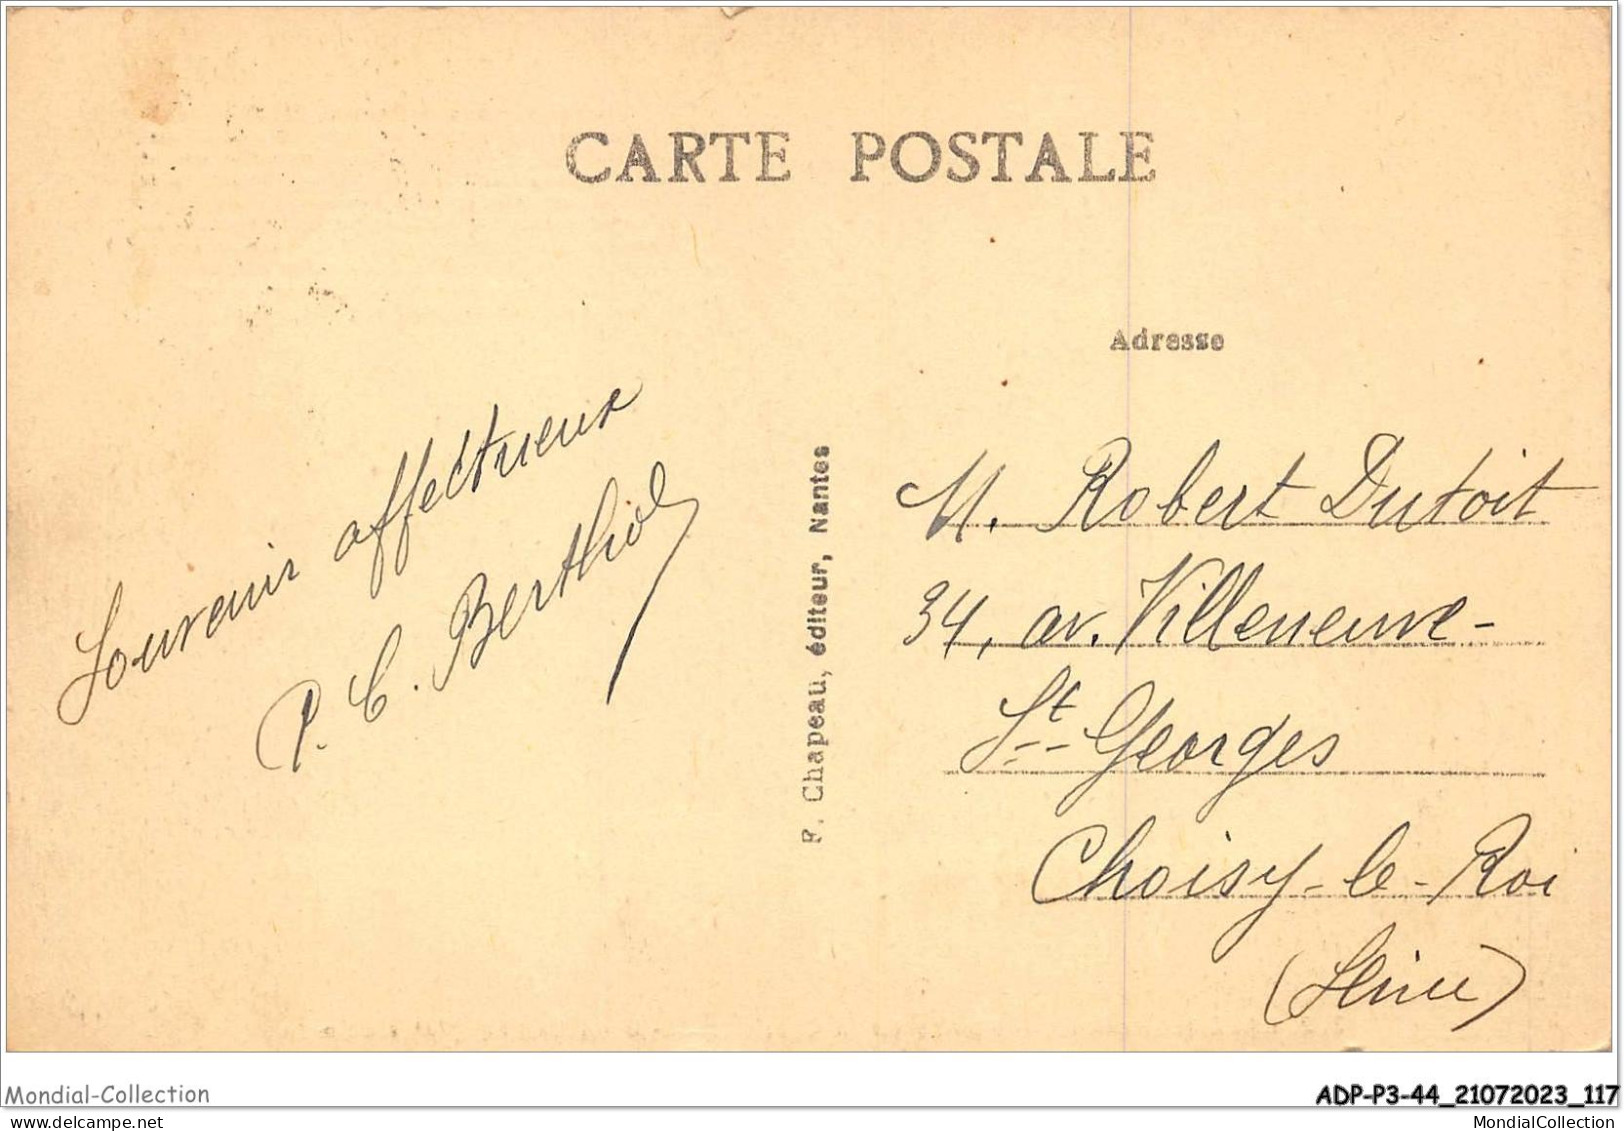 CARTE POSTALE
Souvenir affectueux
P. C. Berthiol
F. Chapeau, éditeur, Nantes
Adresse
M. Robert Dutoit
34, av. Villeneuve-
St Georges
Choisy-le-Roi
(Seine)
Mondial-Collection
ADP-P3-44_21072023_117
MondialCollection
MondialCollection.net